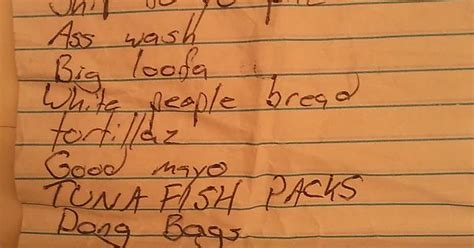 Ass wash
Big loofa
White people bread
tortillaz
Good mayo
TUNA FISH PACKS
Dong Bags